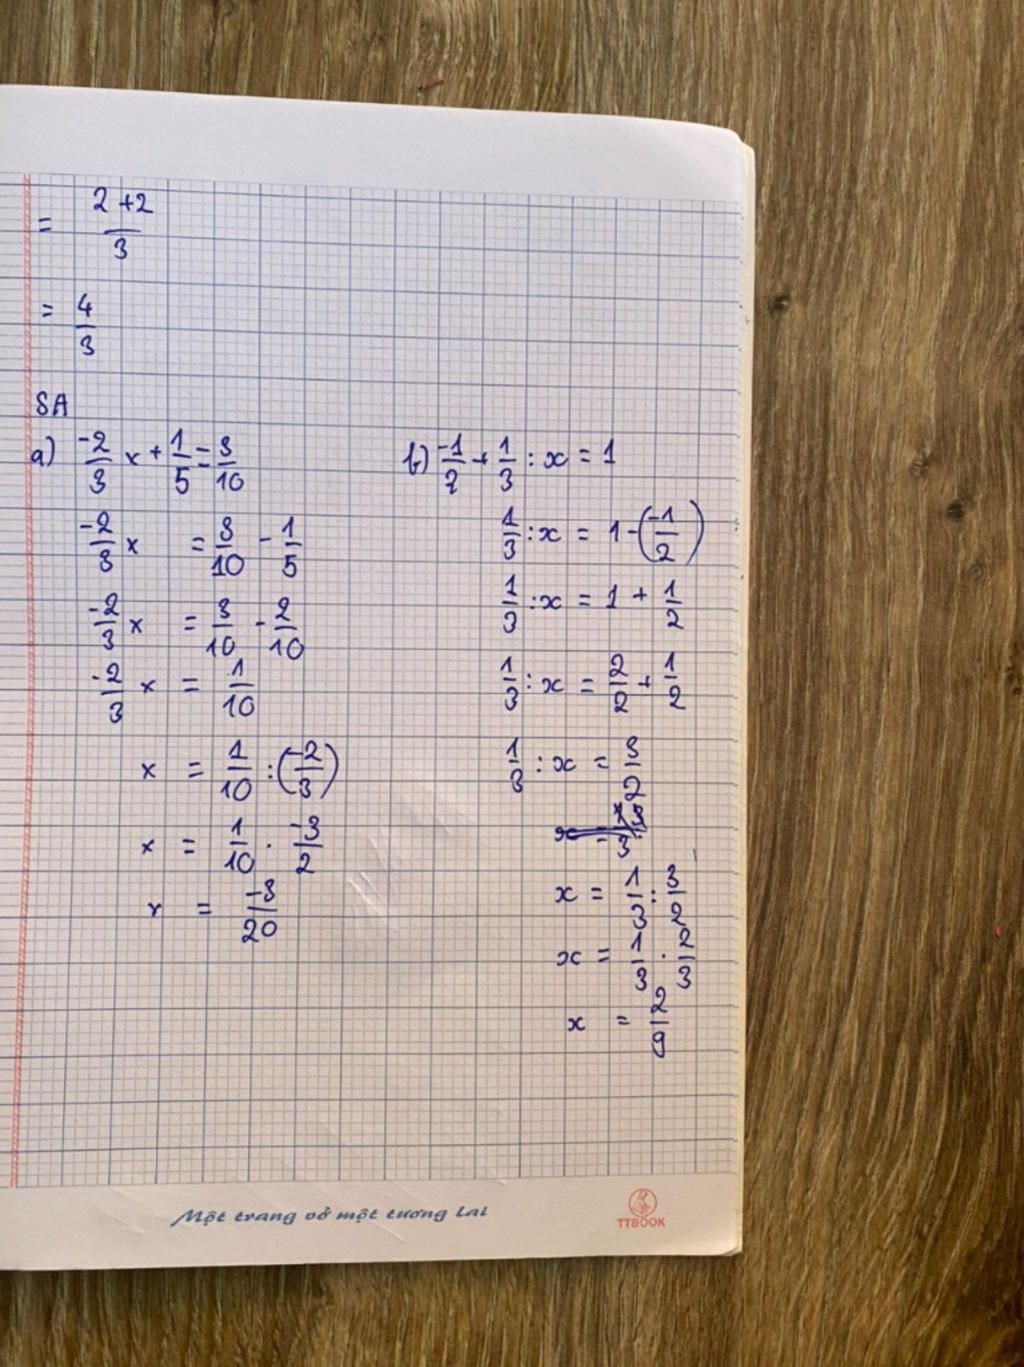 = \frac{2+2}{3}
= \frac{4}{3}
SA
a) \frac{-2}{3} x + \frac{1}{5} = \frac{3}{10}
\frac{-2}{3} x = \frac{3}{10} - \frac{1}{5}
\frac{-2}{3} x = \frac{3}{10} - \frac{2}{10}
\frac{-2}{3} x = \frac{1}{10}
x = \frac{1}{10} : (\frac{-2}{3})
x = \frac{1}{10} . \frac{-3}{2}
x = \frac{-3}{20}
b) \frac{-1}{2} + \frac{1}{3} : x = 1
\frac{1}{3} : x = 1 - (\frac{-1}{2})
\frac{1}{3} : x = 1 + \frac{1}{2}
\frac{1}{3} : x = \frac{2}{2} + \frac{1}{2}
\frac{1}{3} : x = \frac{3}{2}
x = \frac{1}{3} : \frac{3}{2}
x = \frac{1}{3} . \frac{2}{3}
x = \frac{2}{9}
Một trang vở một tương lai
TTBOOK